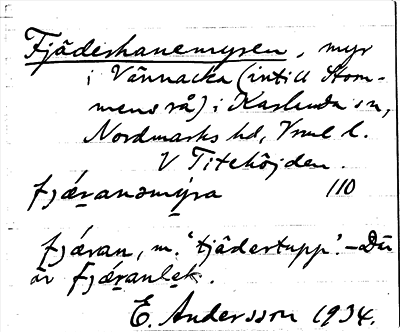 Fjäderhanemyren, myr
i Vännacka (intill Hom-
mens rå) i Karlanda sn,
Nordmarks hd, Vrml l.
V Titehöjden.
fjæ̀ranəmýra 110
fjæran, m. 'tjädertupp'. – Där
är fjæranlek.
E. Andersson 1934.